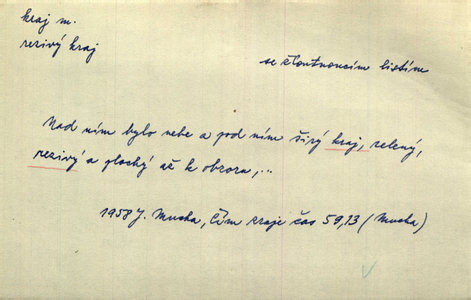 kraj m.
rezivý kraj
se žloutnoucím listím
Nad ním bylo nebe a pod ním širý kraj, zelený,
rezivý a plochý až k obzoru,..
1958 J. Mucha, Čím zraje čas 59,13 (Mucha)